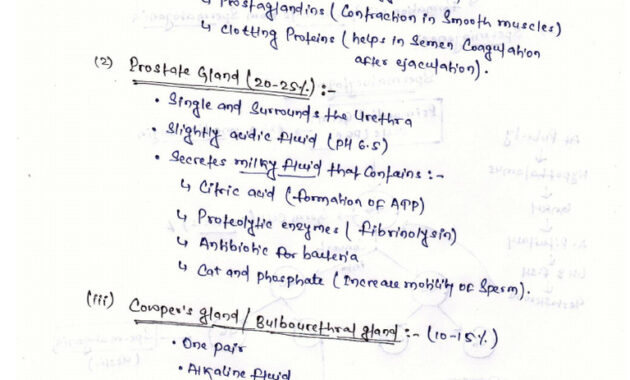 ↳ Prostaglandins (Contraction in Smooth muscles)
↳ Clotting Proteins (helps in Semen Coagulation
after ejaculation).
(2) Prostate Gland (20-25%) :-
• Single and Surrounds the Urethra
• Slightly acidic fluid (PH 6.5)
• Secretes milky fluid that Contains :-
↳ Citric acid (formation of ATP)
↳ Proteolytic enzymes (fibrinolysin)
↳ Antibiotic for bacteria
↳ Cat and phosphate (Increase mobility of Sperm).
(iii) Cowper's gland / Bulbourethral gland :- (10-15%)
• One pair
• Alkaline fluid